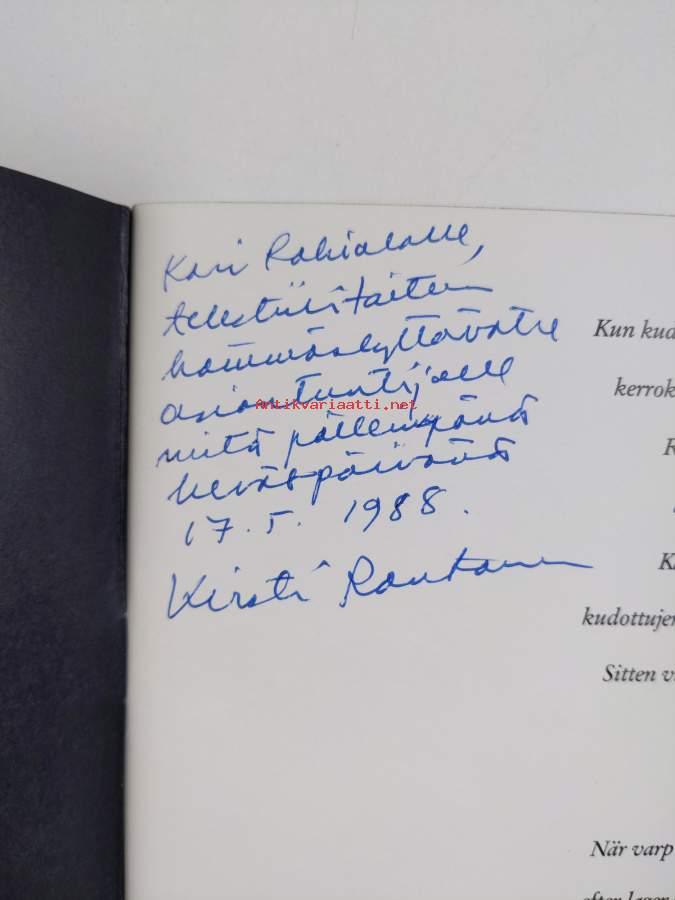 Kari Rahialalle,
tekstiilitaiteen
hämmästyttävälle
asiantuntijalle
Antikvariaatti.net
mitä pällempänä
keväöpäivänä
17.5. 1988.
Kirsti Rantanen
Kun kud
kerrok
R
K
kudottujen
Sitten v
När varp
efter lager